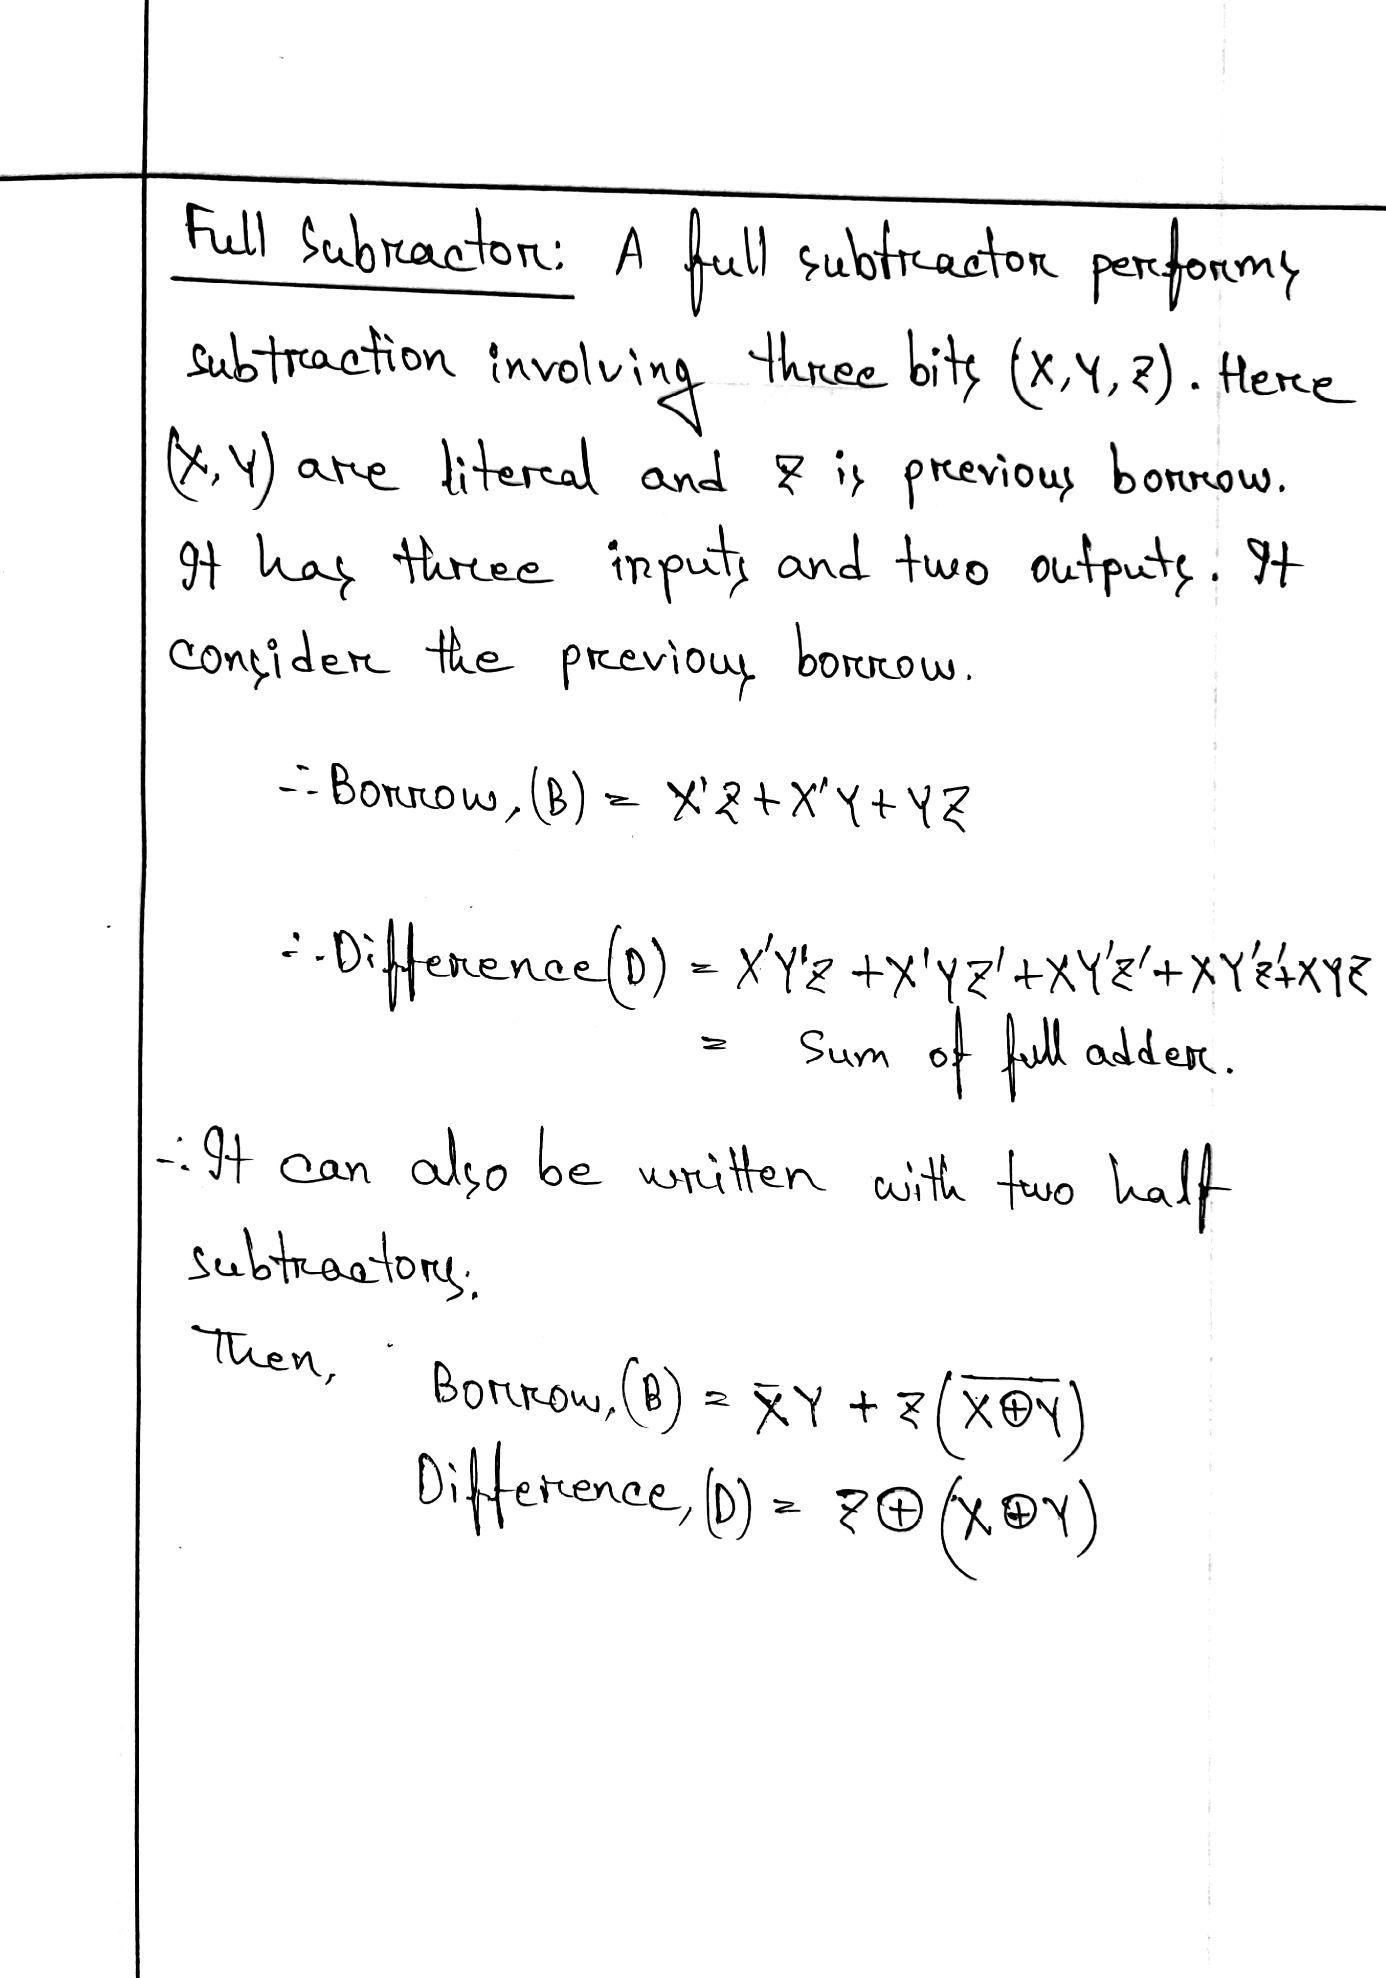 Full Subractor: A full subtractor performs
subtraction involving three bits (X,Y,Z). Here
(X,Y) are literal and Z is previous borrow.
It has three inputs and two outputs. It
consider the previous borrow.
∴ Borrow,(B) = X'Z+X'Y+YZ
∴ Difference(D) = X'Y'Z +X'YZ'+XY'Z'+XY'Z'+XYZ
= Sum of full adder.
∴ It can also be written with two half
subtractors.
Then,
Borrow,(B) = X̅Y + Z(\overline{X⊕Y})
Difference,(D) = Z⊕(X⊕Y)